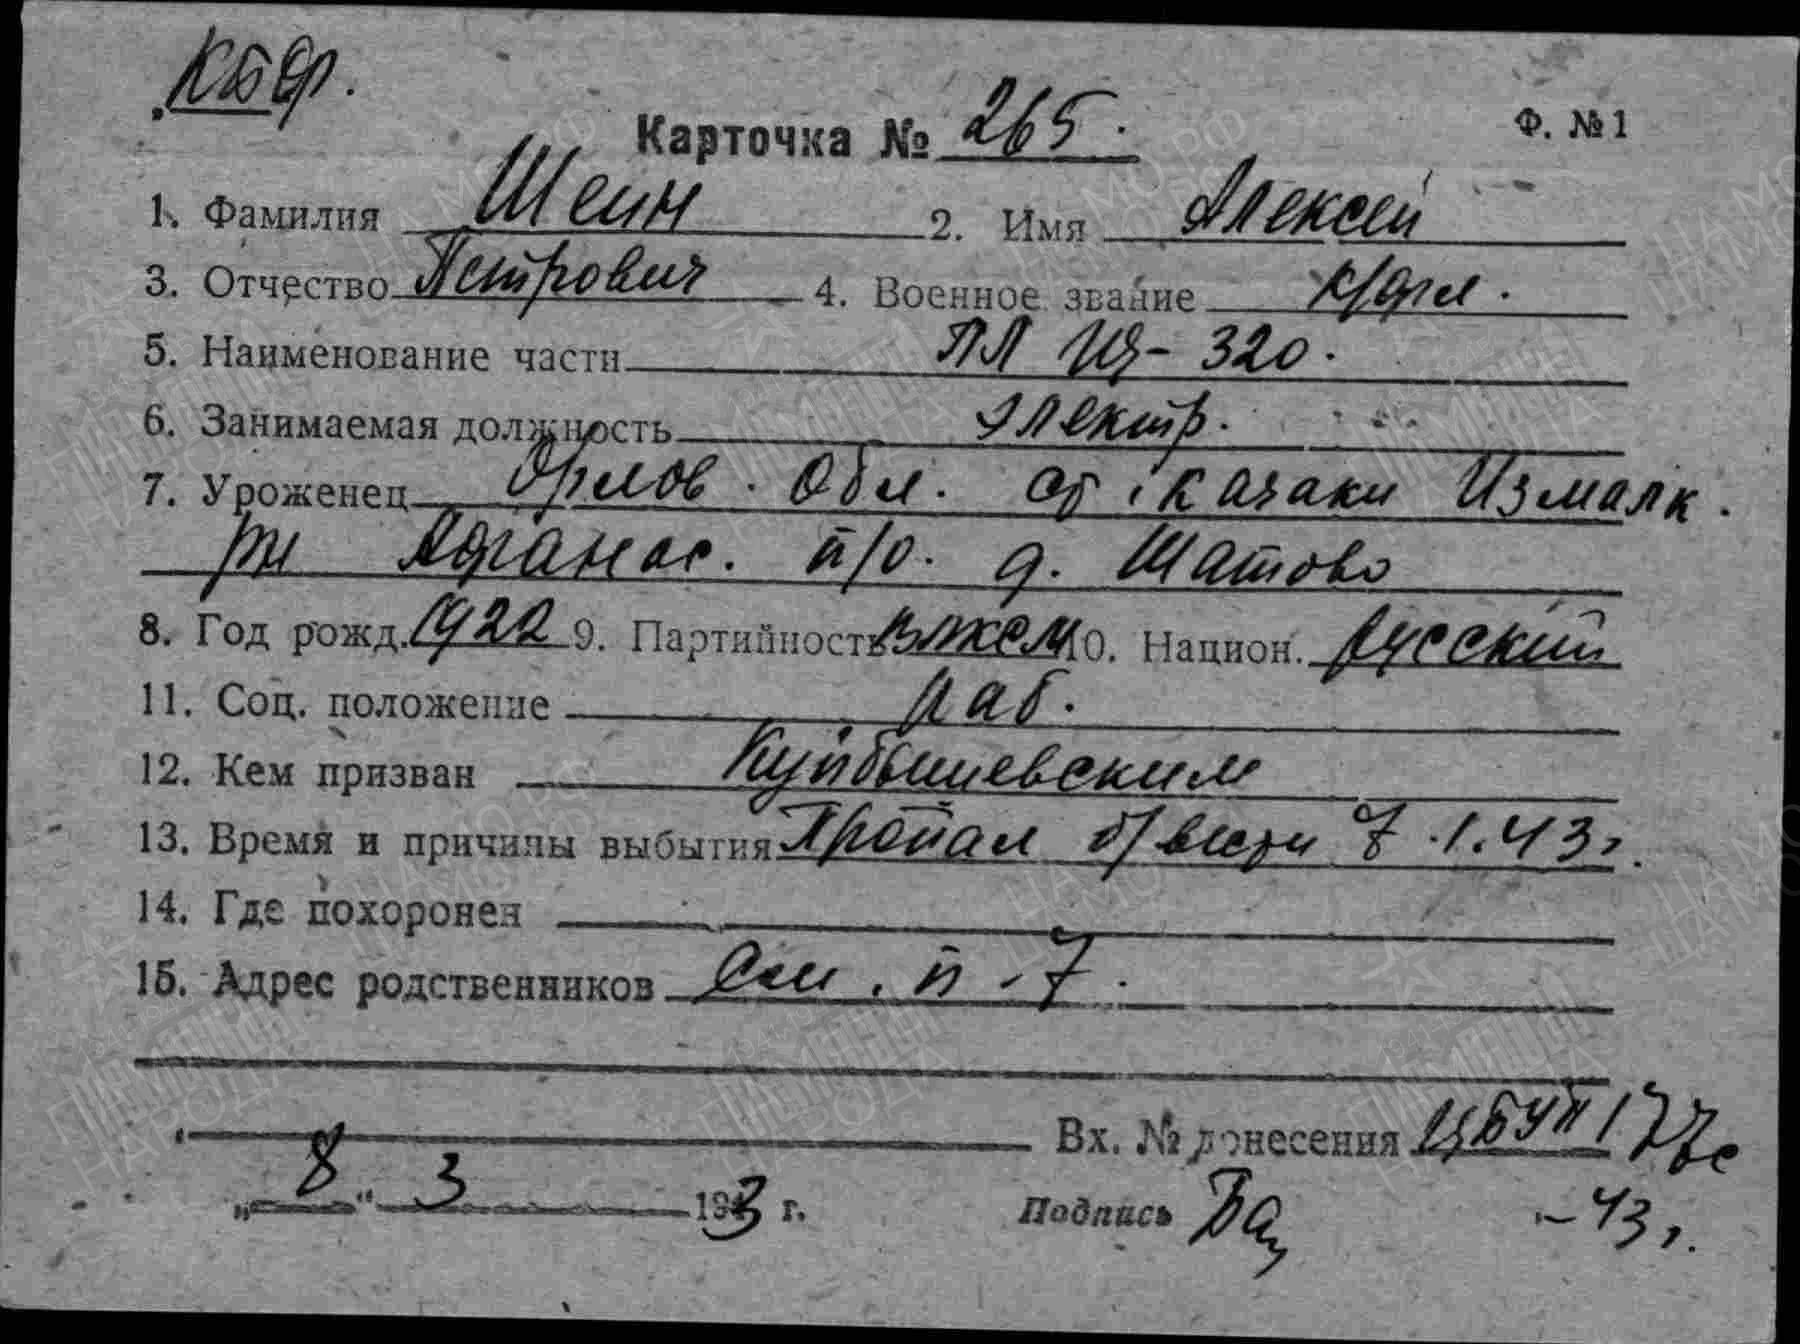 КБФ.
Карточка № 265. Ф. № 1
1. Фамилия Шеин 2. Имя Алексей
3. Отчество Петрович 4. Военное звание к/фл.
5. Наименование части ПЛ Щ-320.
6. Занимаемая должность электр.
7. Уроженец Орлов. обл. ст. Казаки Измалк.
рн Афанас. п/о. д. Шатово
8. Год рожд. 1922 9. Партийность влксм 10. Национ. русский
11. Соц. положение раб.
12. Кем призван Куйбышевским
13. Время и причины выбытия Пропал б/вести 7.1.43 г.
14. Где похоронен
15. Адрес родственников См. п-7.
Вх. № донесения ЦБУП 177с
„8“ 3 1943 г. Подпись -43 г.